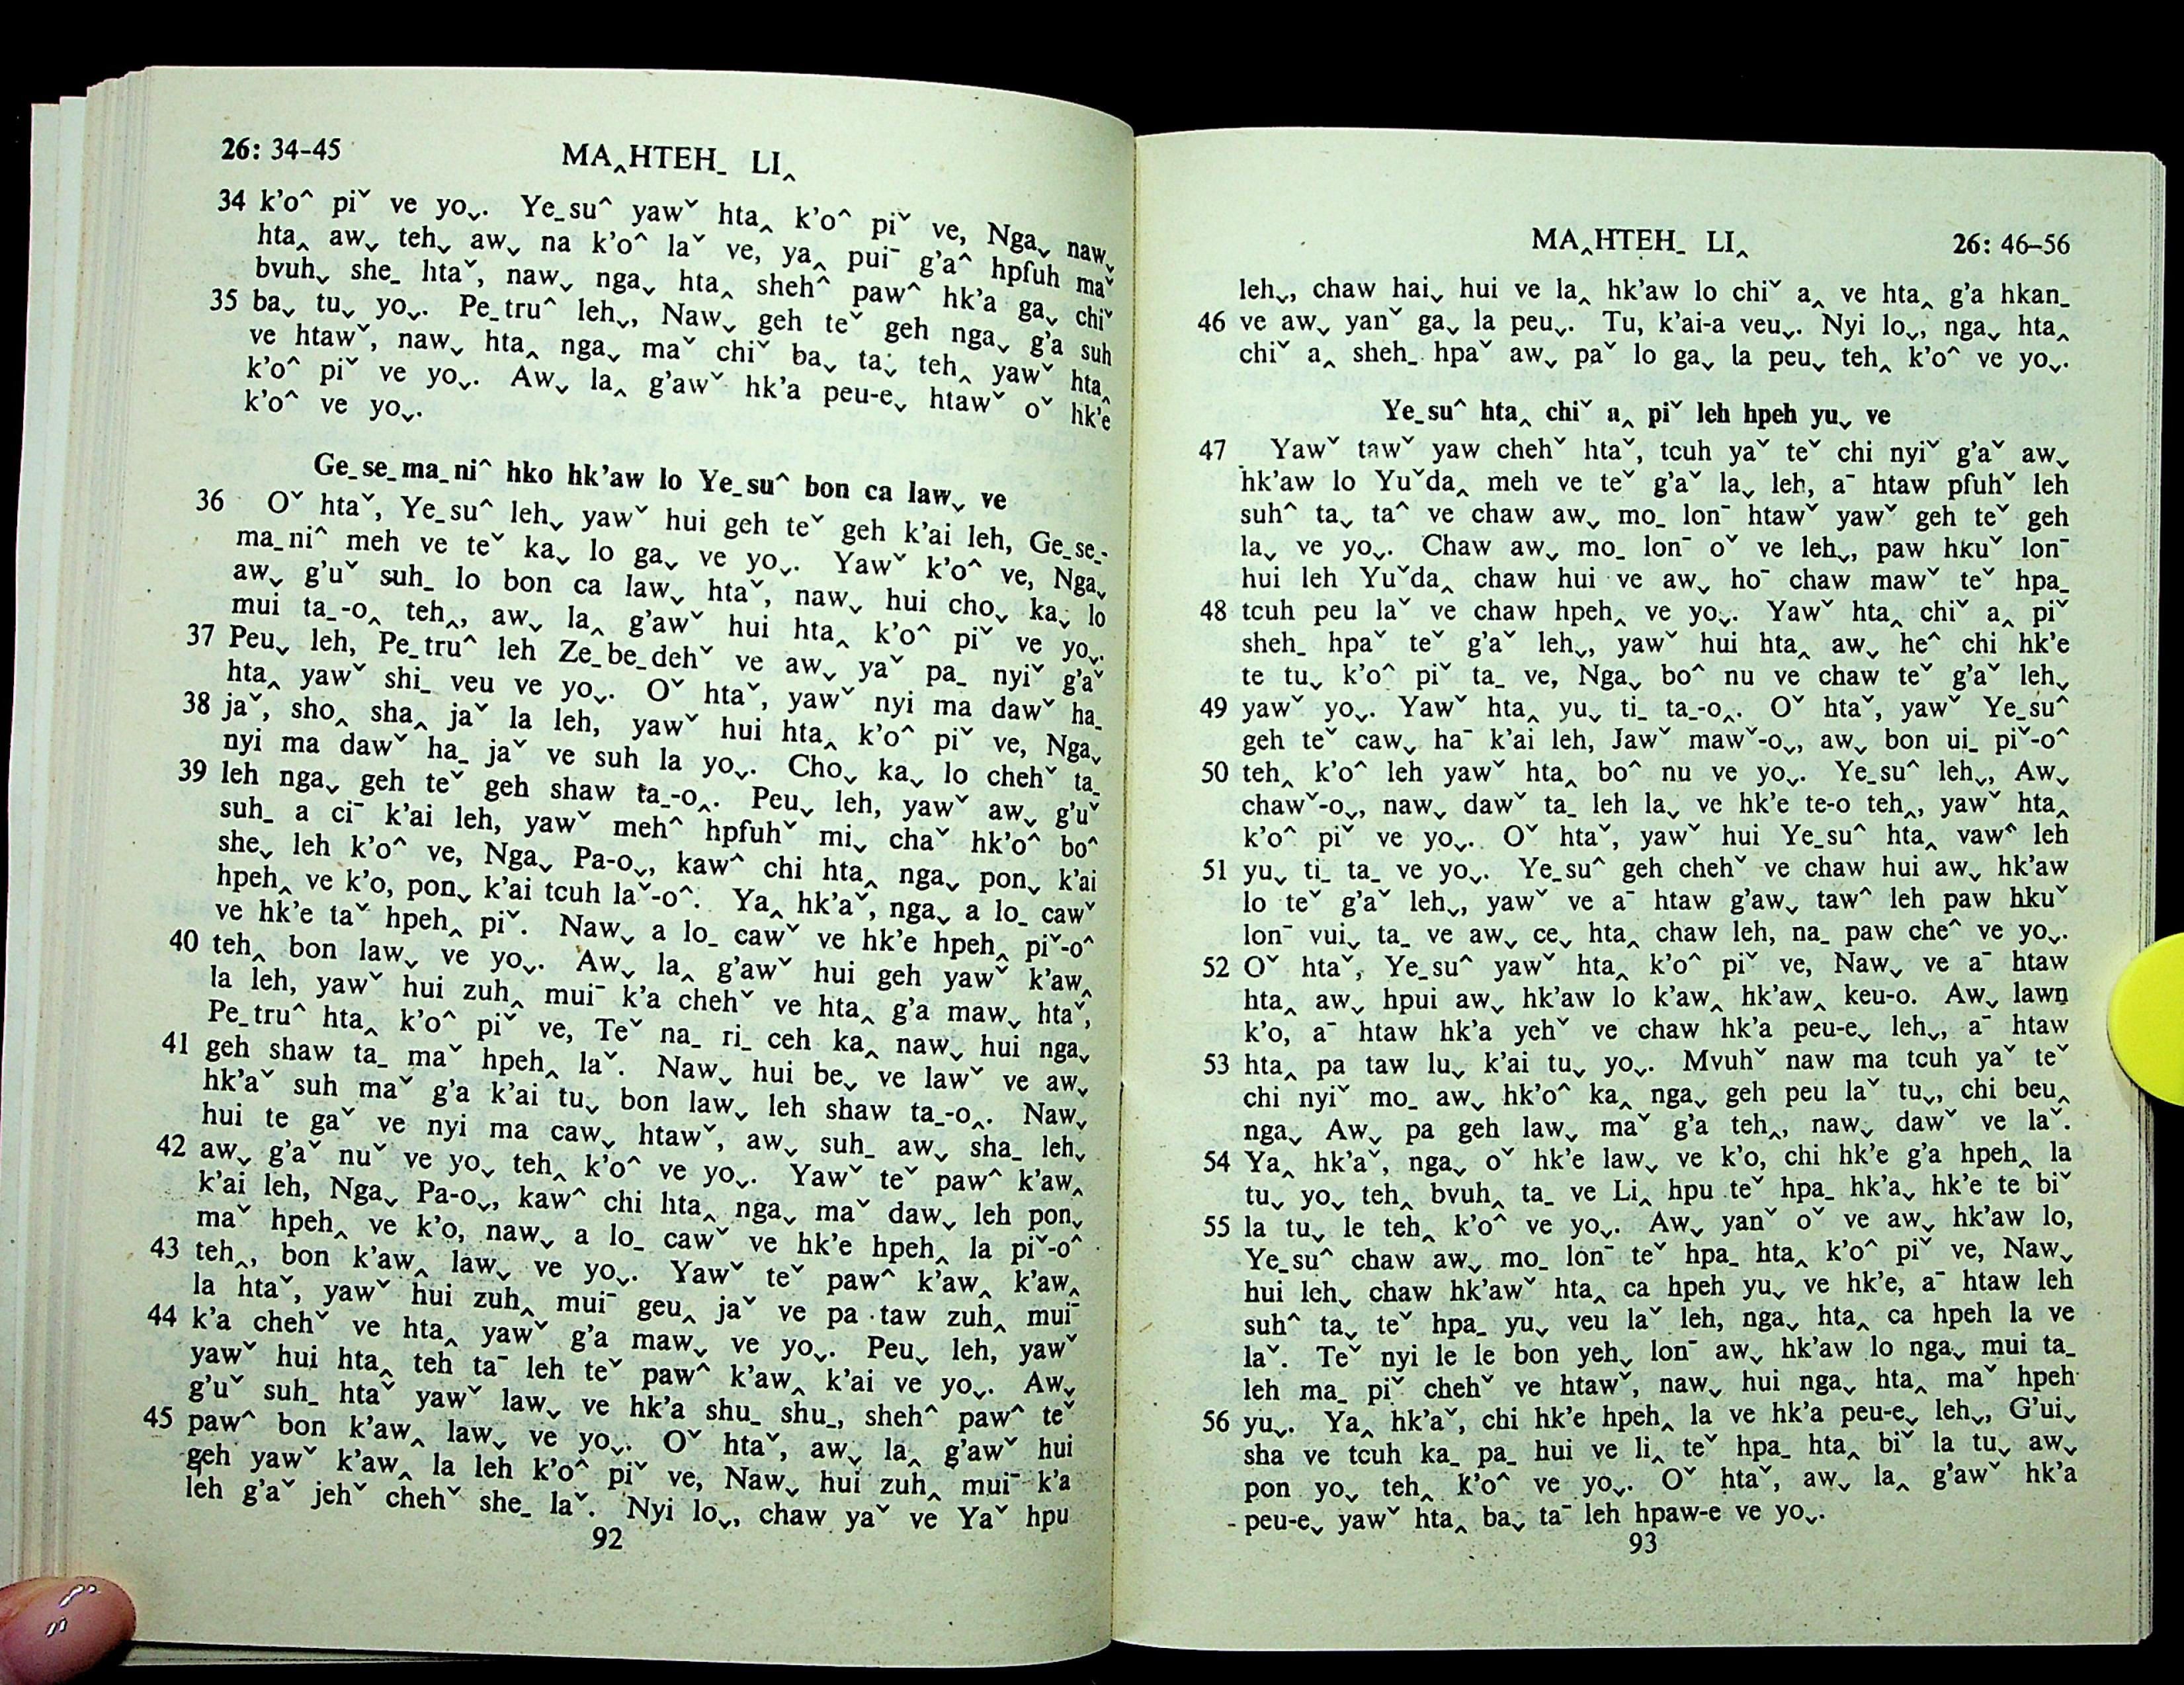 26: 34-45
MA‸HTEH_ LI‸
34 k'o^ piˇ ve yo⌄. Ye_su^ yawˇ hta‸ k'o^ piˇ ve, Nga⌄ naw⌄
hta‸ aw⌄ teh⌄ aw⌄ na k'o^ laˇ ve, ya‸ puiˉ g'a^ hpfuh maˇ
bvuh⌄ she_ htaˇ, naw⌄ nga⌄ hta‸ sheh^ paw^ hk'a ga⌄ chiˇ
35 ba⌄ tu⌄ yo⌄. Pe_tru^ leh⌄, Naw⌄ geh teˇ geh nga⌄ g'a suh
ve htawˇ, naw⌄ hta‸ nga⌄ maˇ chiˇ ba⌄ ta⌄ teh‸ yawˇ hta‸
k'o^ piˇ ve yo⌄. Aw⌄ la‸ g'awˇ hk'a peu-e⌄ htawˇ oˇ hk'e
k'o^ ve yo⌄.
Ge_se_ma_ni^ hko hk'aw lo Ye_su^ bon ca law⌄ ve
36 Oˇ htaˇ, Ye_su^ leh⌄ yawˇ hui geh teˇ geh k'ai leh, Ge_se_-
ma_ni^ meh ve teˇ ka⌄ lo ga⌄ ve yo⌄. Yawˇ k'o^ ve, Nga⌄
aw⌄ g'uˇ suh_ lo bon ca law⌄ htaˇ, naw⌄ hui cho⌄ ka⌄ lo
mui ta_-o‸ teh‸, aw⌄ la‸ g'awˇ hui hta‸ k'o^ piˇ ve yo⌄.
37 Peu⌄ leh, Pe_tru^ leh Ze_be_dehˇ ve aw⌄ yaˇ pa_ nyiˇ g'aˇ
hta‸ yawˇ shi_ veu ve yo⌄. Oˇ htaˇ, yawˇ nyi ma dawˇ ha_
38 jaˇ, sho‸ sha‸ jaˇ la leh, yawˇ hui hta‸ k'o^ piˇ ve, Nga⌄
nyi ma dawˇ ha_ jaˇ ve suh la yo⌄. Cho⌄ ka⌄ lo chehˇ ta_
39 leh nga⌄ geh teˇ geh shaw ta_-o‸. Peu⌄ leh, yawˇ aw⌄ g'uˇ
suh_ a ciˉ k'ai leh, yawˇ meh^ hpfuhˇ mi⌄ chaˇ hk'o^ bo^
she⌄ leh k'o^ ve, Nga⌄ Pa-o⌄, kaw^ chi hta‸ nga⌄ pon⌄ k'ai
hpeh‸ ve k'o, pon⌄ k'ai tcuh laˇ-o^. Ya‸ hk'aˇ, nga⌄ a lo_ cawˇ
ve hk'e taˇ hpeh‸ piˇ. Naw⌄ a lo_ cawˇ ve hk'e hpeh‸ piˇ-o^
40 teh‸ bon law⌄ ve yo⌄. Aw⌄ la‸ g'awˇ hui geh yawˇ k'aw‸
la leh, yawˇ hui zuh‸ muiˉ k'a chehˇ ve hta‸ g'a maw⌄ htaˇ,
Pe_tru^ hta‸ k'o^ piˇ ve, Teˇ na_ ri_ ceh ka‸ naw⌄ hui nga⌄
41 geh shaw ta_ maˇ hpeh‸ laˇ. Naw⌄ hui be⌄ ve lawˇ ve aw⌄
hk'aˇ suh maˇ g'a k'ai tu⌄ bon law⌄ leh shaw ta_-o‸. Naw⌄
hui te gaˇ ve nyi ma caw⌄ htawˇ, aw⌄ suh_ aw⌄ sha_ leh⌄
42 aw⌄ g'aˇ nuˇ ve yo⌄ teh‸ k'o^ ve yo⌄. Yawˇ teˇ paw^ k'aw‸
k'ai leh, Nga⌄ Pa-o⌄, kaw^ chi hta‸ nga⌄ maˇ daw⌄ leh pon⌄
maˇ hpeh‸ ve k'o, naw⌄ a lo_ cawˇ ve hk'e hpeh‸ la piˇ-o^
43 teh‸, bon k'aw‸ law⌄ ve yo⌄. Yawˇ teˇ paw^ k'aw‸ k'aw‸
la htaˇ, yawˇ hui zuh‸ muiˉ geu‸ jaˇ ve pa taw zuh‸ muiˉ
44 k'a chehˇ ve hta‸ yawˇ g'a maw⌄ ve yo⌄. Peu⌄ leh, yawˇ
yawˇ hui hta‸ teh taˉ leh teˇ paw^ k'aw‸ k'ai ve yo⌄. Aw⌄
g'uˇ suh_ htaˇ yawˇ law⌄ ve hk'a shu_ shu_, sheh^ paw^ teˇ
45 paw^ bon k'aw‸ law⌄ ve yo⌄. Oˇ htaˇ, aw⌄ la‸ g'awˇ hui
geh yawˇ k'aw‸ la leh k'o^ piˇ ve, Naw⌄ hui zuh‸ muiˉ k'a
leh g'aˇ jehˇ chehˇ she_ laˇ. Nyi lo⌄, chaw yaˇ ve Yaˇ hpu
92
MA‸HTEH_ LI‸
26: 46-56
leh⌄, chaw hai⌄ hui ve la‸ hk'aw lo chiˇ a‸ ve hta‸ g'a hkan_
46 ve aw⌄ yanˇ ga⌄ la peu⌄. Tu, k'ai-a veu⌄. Nyi lo⌄, nga⌄ hta‸
chiˇ a‸ sheh_ hpaˇ aw⌄ paˇ lo ga⌄ la peu⌄ teh‸ k'o^ ve yo⌄.
Ye_su^ hta‸ chiˇ a‸ piˇ leh hpeh yu⌄ ve
47 Yawˇ tawˇ yaw chehˇ htaˇ, tcuh yaˇ teˇ chi nyiˇ g'aˇ aw⌄
hk'aw lo Yuˇda‸ meh ve teˇ g'aˇ la⌄ leh, aˉ htaw pfuhˇ leh
suh^ ta⌄ ta^ ve chaw aw⌄ mo_ lonˉ htawˇ yawˇ geh teˇ geh
la⌄ ve yo⌄. Chaw aw⌄ mo_ lonˉ oˇ ve leh⌄, paw hkuˇ lonˉ
hui leh Yuˇda‸ chaw hui ve aw⌄ hoˉ chaw mawˇ teˇ hpa_
48 tcuh peu laˇ ve chaw hpeh‸ ve yo⌄. Yawˇ hta‸ chiˇ a‸ piˇ
sheh_ hpaˇ teˇ g'aˇ leh⌄, yawˇ hui hta‸ aw⌄ he^ chi hk'e
te tu⌄ k'o^ piˇ ta_ ve, Nga⌄ bo^ nu ve chaw teˇ g'aˇ leh⌄
49 yawˇ yo⌄. Yawˇ hta‸ yu⌄ ti_ ta_-o‸. Oˇ htaˇ, yawˇ Ye_su^
geh teˇ caw⌄ haˉ k'ai leh, Jawˇ mawˇ-o⌄, aw⌄ bon ui_ piˇ-o^
50 teh‸ k'o^ leh yawˇ hta‸ bo^ nu ve yo⌄. Ye_su^ leh⌄, Aw⌄
chawˇ-o⌄, naw⌄ dawˇ ta_ leh la⌄ ve hk'e te-o teh‸, yawˇ hta‸
k'o^ piˇ ve yo⌄. Oˇ htaˇ, yawˇ hui Ye_su^ hta‸ vaw^ leh
51 yu⌄ ti_ ta_ ve yo⌄. Ye_su^ geh chehˇ ve chaw hui aw⌄ hk'aw
lo teˇ g'aˇ leh⌄, yawˇ ve aˉ htaw g'aw⌄ taw^ leh paw hkuˇ
lonˉ vui⌄ ta_ ve aw⌄ ce⌄ hta‸ chaw leh, na_ paw che^ ve yo⌄.
52 Oˇ htaˇ, Ye_su^ yawˇ hta‸ k'o^ piˇ ve, Naw⌄ ve aˉ htaw
hta‸ aw⌄ hpui aw⌄ hk'aw lo k'aw‸ hk'aw‸ keu-o. Aw⌄ lawn
k'o, aˉ htaw hk'a yehˇ ve chaw hk'a peu-e⌄ leh⌄, aˉ htaw
53 hta‸ pa taw lu⌄ k'ai tu⌄ yo⌄. Mvuhˇ naw ma tcuh yaˇ teˇ
chi nyiˇ mo_ aw⌄ hk'o^ ka‸ nga⌄ geh peu laˇ tu⌄, chi beu‸
nga⌄ Aw⌄ pa geh law⌄ maˇ g'a teh‸, naw⌄ dawˇ ve laˇ.
54 Ya‸ hk'aˇ, nga⌄ oˇ hk'e law⌄ ve k'o, chi hk'e g'a hpeh‸ la
tu⌄ yo⌄ teh‸ bvuh‸ ta_ ve Li‸ hpu teˇ hpa_ hk'a⌄ hk'e te biˇ
55 la tu⌄ le teh‸ k'o^ ve yo⌄. Aw⌄ yanˇ oˇ ve aw⌄ hk'aw lo,
Ye_su^ chaw aw⌄ mo_ lonˉ teˇ hpa_ hta‸ k'o^ piˇ ve, Naw⌄
hui leh⌄ chaw hk'awˇ hta‸ ca hpeh yu⌄ ve hk'e, aˉ htaw leh
suh^ ta⌄ teˇ hpa_ yu⌄ veu laˇ leh, nga⌄ hta‸ ca hpeh la ve
laˇ. Teˇ nyi le le bon yeh⌄ lonˉ aw⌄ hk'aw lo nga⌄ mui ta_
leh ma_ piˇ chehˇ ve htawˇ, naw⌄ hui nga⌄ hta‸ maˇ hpeh
56 yu⌄. Ya‸ hk'aˇ, chi hk'e hpeh‸ la ve hk'a peu-e⌄ leh⌄, G'ui⌄
sha ve tcuh ka_ pa_ hui ve li‸ teˇ hpa_ hta‸ biˇ la tu⌄ aw⌄
pon yo⌄ teh‸ k'o^ ve yo⌄. Oˇ htaˇ, aw⌄ la‸ g'awˇ hk'a
peu-e⌄ yawˇ hta‸ ba⌄ taˉ leh hpaw-e ve yo⌄.
93